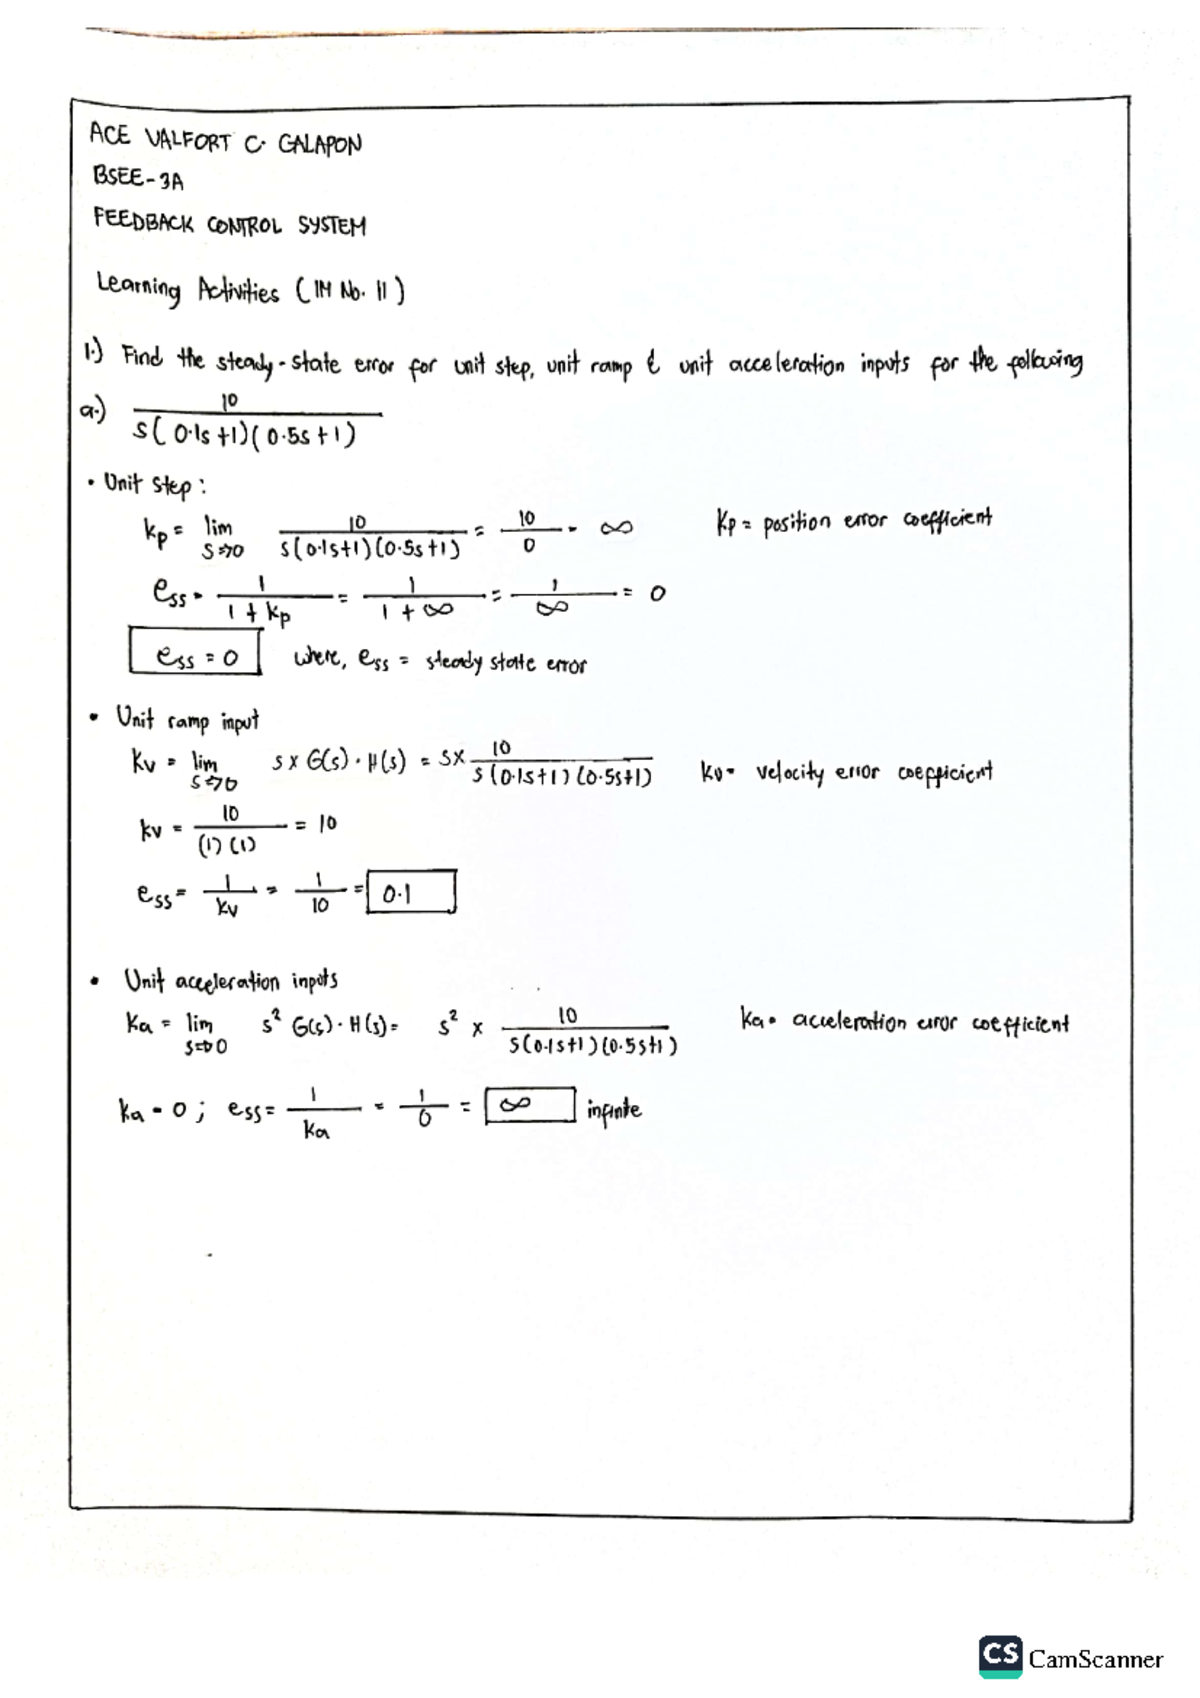 ACE VALFORT C. GALAPON
BSEE-3A
FEEDBACK CONTROL SYSTEM
Learning Activities (IM No. 11)
1.) Find the steady-state error for unit step, unit ramp & unit acceleration inputs for the following
a.) 10 / s(0.1s+1)(0.5s+1)
• Unit step:
kp = lim s→0 10 / s(0.1s+1)(0.5s+1) = 10 / 0 = ∞ Kp = position error coefficient
ess = 1 / 1 + kp = 1 / 1 + ∞ = 1 / ∞ = 0
ess = 0 where, ess = steady state error
• Unit ramp input
Kv = lim s→0 s x G(s) · H(s) = sx 10 / s(0.1s+1)(0.5s+1) kv = velocity error coefficient
kv = 10 / (1)(1) = 10
ess = 1 / kv = 1 / 10 = 0.1
• Unit acceleration inputs
Ka = lim s→0 s² G(s) · H(s) = s² x 10 / s(0.1s+1)(0.5s+1) ka = acceleration error coefficient
ka = 0 ; ess = 1 / ka = 1 / 0 = ∞ infinite
CS CamScanner